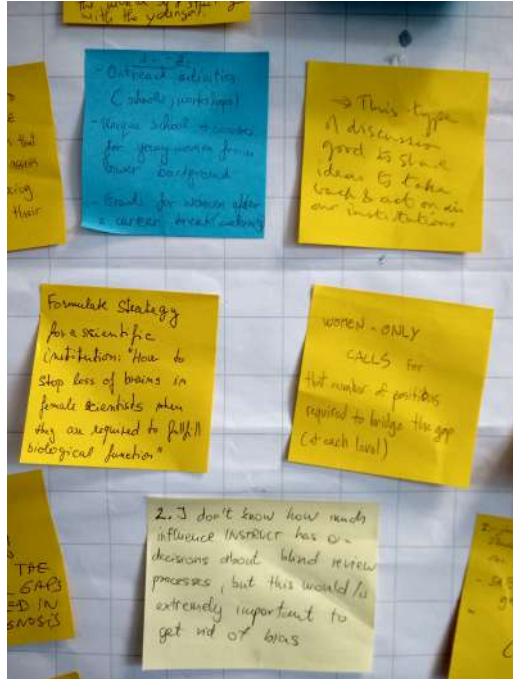 with the younger.
- Outreach activities
(schools, workshops)
- Unique school + courses
for young women from
lower background
- Grants for women after
a career break/maternity
→ This type
of discussion
good to share
ideas to take
back & act on in
our institutions
Formulate Strategy
for a scientific
institution: "How to
stop loss of brains in
female scientists when
they are required to fulfill
biological function"
WOMEN-ONLY
CALLS for
that number of positions
required to bridge the gap
(at each level)
2. I don't know how much
influence INSTRUCT has on
decisions about blind review
processes, but this would be
extremely important to
get rid of bias
THE
GAPS
ED IN
GNOSIS